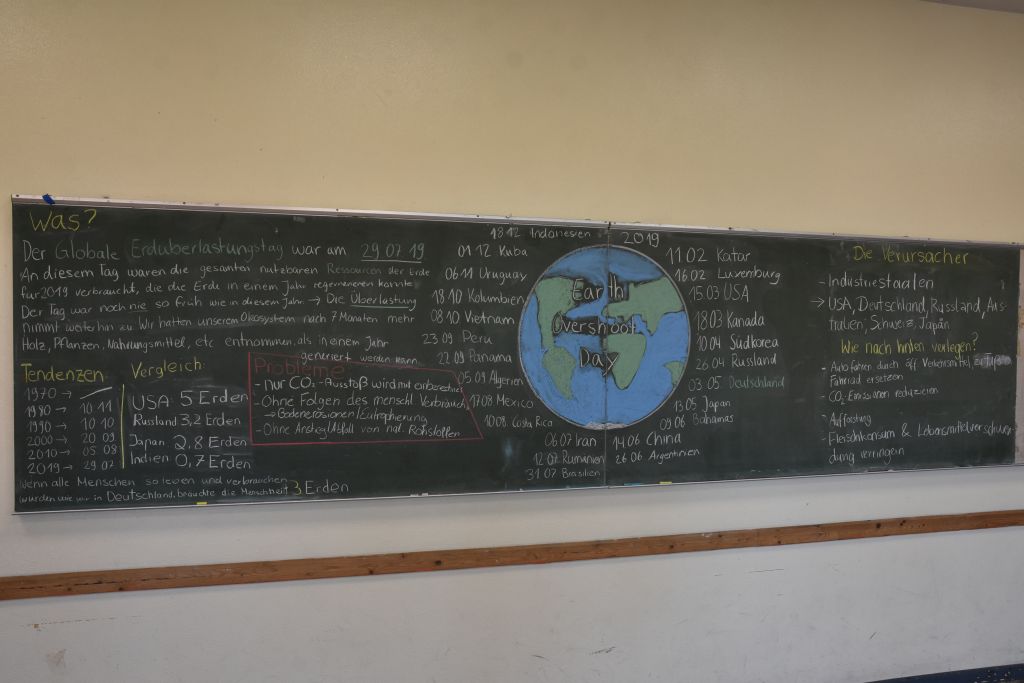 Was?
Der Globale Erdüberlastungstag war am 29.07.19
An diesem Tag waren die gesamten nutzbaren Ressourcen der Erde
für 2019 verbraucht, die die Erde in einem Jahr regenerieren könnte
Der Tag war noch nie so früh wie in diesem Jahr → Die Überlastung
nimmt weiterhin zu. Wir hatten unserem Ökosystem nach 7 Monaten mehr
Holz, Pflanzen, Nahrungsmittel, etc entnommen, als in einem Jahr
generiert werden kann
Tendenzen
1970 →
1980 → 10 11
1990 → 10 10
2000 → 20 09
2010 → 05 08
2019 → 29 07
Vergleich
USA 5 Erden
Russland 3,2 Erden
Japan 2,8 Erden
Indien 0,7 Erden
Wenn alle Menschen so leben und verbrauchen
würden wie wir in Deutschland, bräuchte die Menschheit 3 Erden
Probleme
- nur CO₂-Ausstoß wird mit einberechnet
- Ohne Folgen des menschl Verbrauchs
→ Bodenerosionen/Eutrophierung
- Ohne Anstieg/Abfall von nat. Rohstoffen
18 12 Indonesien
01 12 Kuba
06 11 Uruguay
18 10 Kolumbien
08 10 Vietnam
23 09 Peru
22 09 Panama
05 09 Algerien
17 08 Mexico
10 08 Costa Rica
06 07 Iran
12 07 Rumänien
31 07 Brasilien
Earth
Overshoot
Day
2019
11 02 Katar
16 02 Luxemburg
15 03 USA
18 03 Kanada
10 04 Südkorea
26 04 Russland
03 05 Deutschland
13 05 Japan
09 06 Bahamas
14 06 China
26 06 Argentinien
Die Verursacher
- Industriestaaten
→ USA, Deutschland, Russland, Aus-
tralien, Schweiz, Japan
Wie nach hinten verlegen?
- Auto fahren durch öff Verkehrsmittel
Fahrrad ersetzen
- CO₂ Emissionen reduzieren
- Aufforstung
- Fleischkonsum & Lebensmittelverschwen-
dung verringern